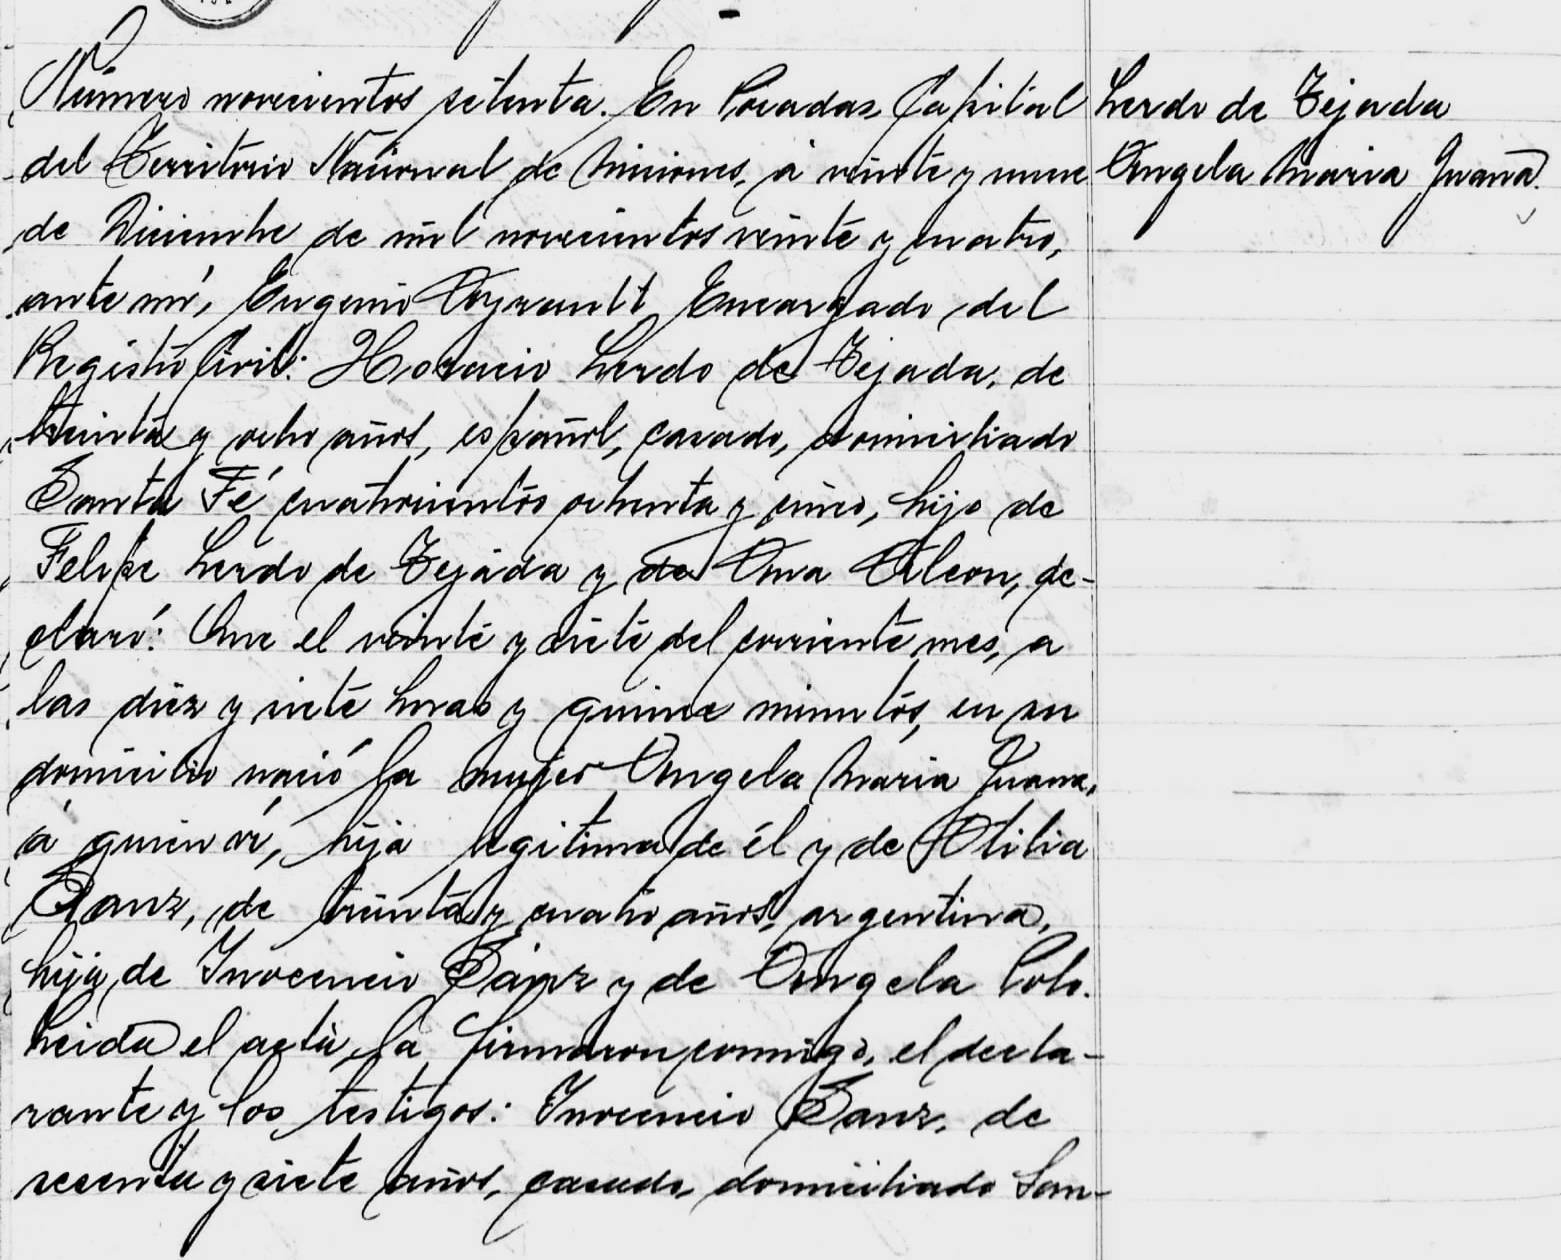 Número novecientos setenta. En Posadas, Capital
del Territorio Nacional de Misiones, á veinte y nueve
de Diciembre de mil novecientos veinte y cuatro,
ante mí, Eugenio Encargado del
Registro Civil: Horacio Lerdo de Tejada, de
treinta y ocho años, español, casado, domiciliado
Santa Fé cuatrocientos ochenta y cinco, hijo de
Felipe Lerdo de Tejada y de Ana de-
claró: Que el veinte y siete del corriente mes, a
las diez y siete horas y quince minutos, en su
domicilio nació la mujer Angela Maria Juana,
á quien ví, hija legitima de él y de Otilia
Sanz, de treinta y cuatro años, argentina,
hija de Inocencio Sánz y de Angela Polo.
Leida el acta la firmaron conmigo, el decla-
rante y los testigos: Inocencio Sanz, de
sesenta y siete años, casado, domiciliado San-
Lerdo de Tejada
Angela Maria Juana.